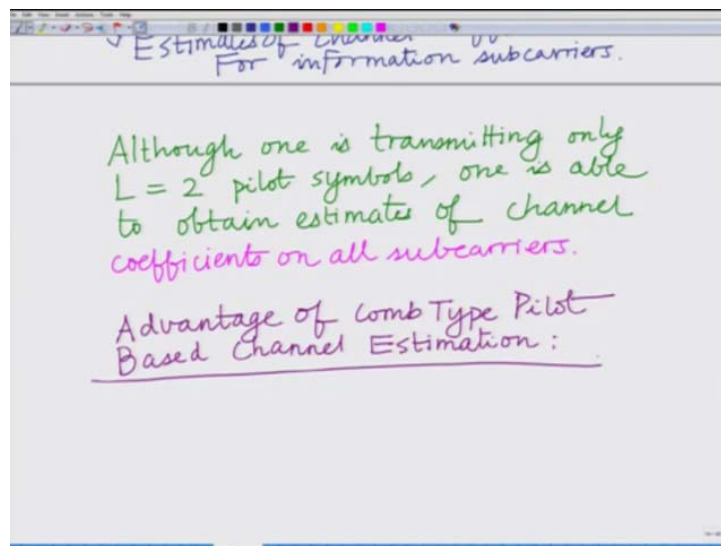 Estimates of Channel
For information subcarriers.
Although one is transmitting only
L = 2 pilot symbols, one is able
to obtain estimates of channel
coefficients on all subcarriers.
Advantage of Comb Type Pilot
Based Channel Estimation: